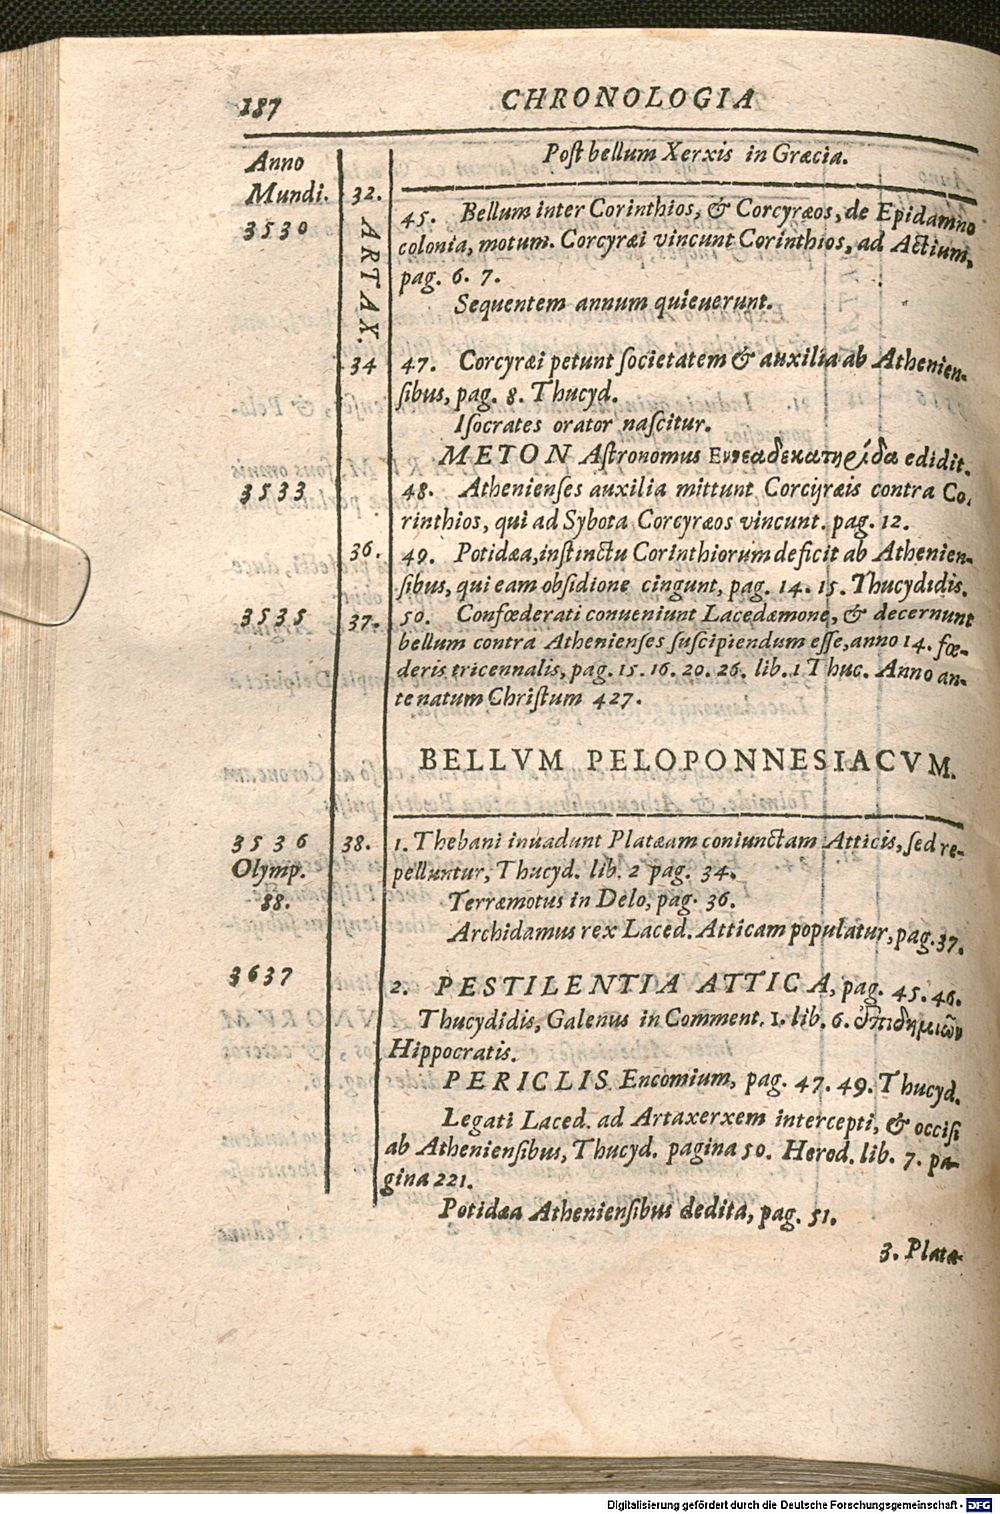 187 CHRONOLOGIA
Anno Post bellum Xerxis in Græcia.
Mundi. 32.
3530 45. Bellum inter Corinthios, & Corcyræos, de Epidamno
ARTAX. colonia, motum. Corcyræi vincunt Corinthios, ad Actium,
pag. 6. 7.
Sequentem annum quieuerunt.
34 47. Corcyræi petunt ſocietatem & auxilia ab Athenien-
ſibus, pag. 8. Thucyd.
Iſocrates orator naſcitur.
METON Aſtronomus Εννεαδεκατηρίδα edidit.
3533 48. Athenienſes auxilia mittunt Corcijræis contra Co-
rinthios, qui ad Sybota Corcyræos vincunt. pag. 12.
36. 49. Potidæa, inſtinctu Corinthiorum deficit ab Athenien-
ſibus, qui eam obſidione cingunt, pag. 14. 15. Thucydidis.
3535 37. 50. Confœderati conueniunt Lacedæmone, & decernunt
bellum contra Athenienſes ſuſcipiendum eſſe, anno 14. fœ-
deris tricennalis, pag. 15. 16. 20. 26. lib. 1 Thuc. Anno an-
te natum Chriſtum 427.
BELLVM PELOPONNESIACVM.
3536 38. 1. Thebani inuadunt Platæam coniunctam Atticis, ſed re-
Olymp. pelluntur, Thucyd. lib. 2 pag. 34.
88. Terræmotus in Delo, pag. 36.
Archidamus rex Laced. Atticam populatur, pag. 37.
3637 2. PESTILENTIA ATTICA, pag. 45. 46.
Thucydidis, Galenus in Comment. 1. lib. 6. Ἐπιδημιῶν
Hippocratis.
PERICLIS Encomium, pag. 47. 49. Thucyd.
Legati Laced. ad Artaxerxem intercepti, & occiſi
ab Athenienſibus, Thucyd. pagina 50. Herod. lib. 7. pa-
gina 221.
Potidæa Athenienſibus dedita, pag. 51.
3. Platæ-
Digitalisierung gefördert durch die Deutsche Forschungsgemeinschaft - DFG